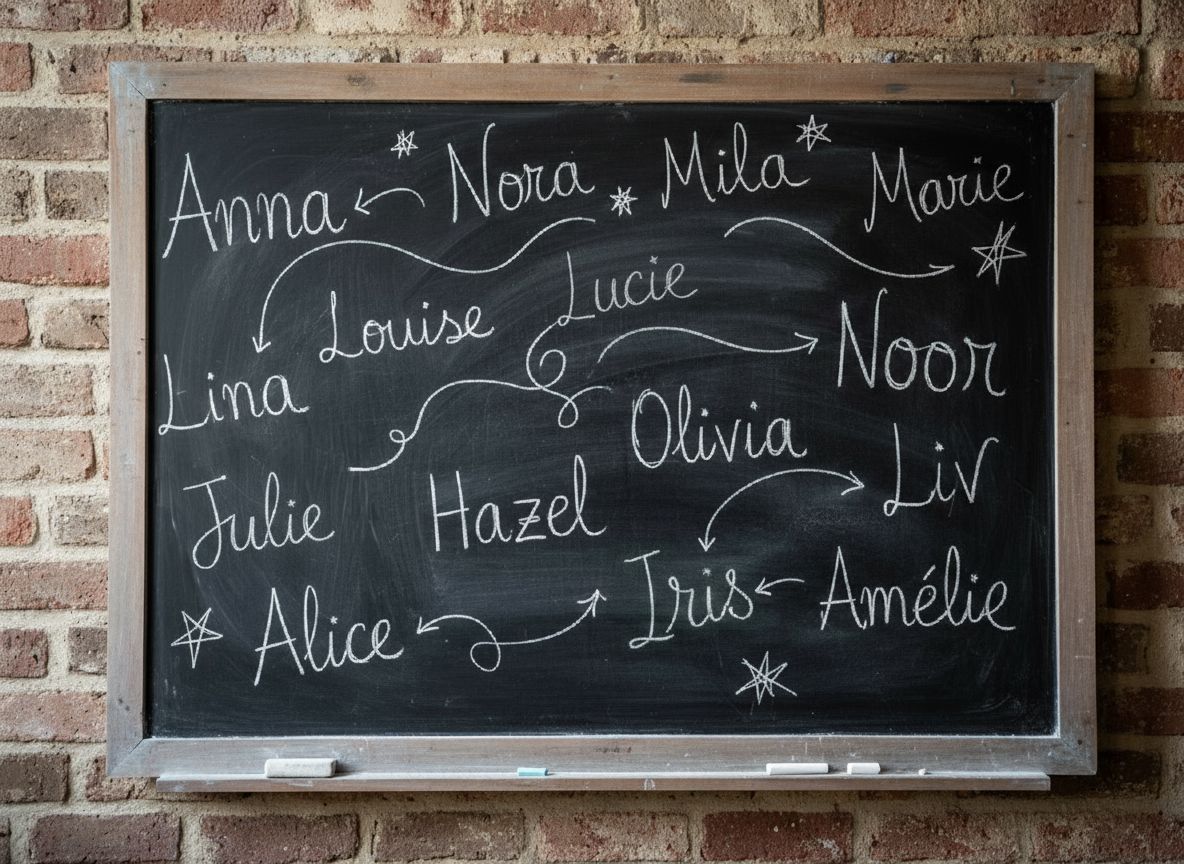 Anna Nora Mila Marie
Louise Lucie
Lina Noor
Olivia
Julie Hazel Liv
Alice Iris Amélie